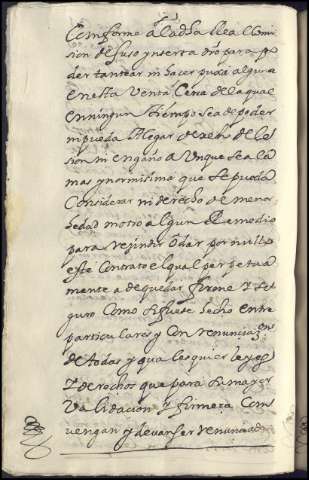 Comforme a la dha Rl comi
sion de suso ynserta dro para po
der tantear ni hacer puxa alguna
en esta Venta Cerca de la qual
en ningun tiempo sea de poder
ni pueda Alegar derecho de lec
sion ni engaño a Unque sea la
mas ynormisima que se pueda
Considerar ni derecho de menor
hedad motro algun Remedio
para rejindir Odar por nullo
este Contrato el qual perpetua
mente a de quedar firme y se
guro Como si fuese hecho entre
particulares y Con renunciazon
de todas y qualesquier leyes
y derechos que para su mayor
Validacion y firmeça Com
vengan y devan ser renunciados